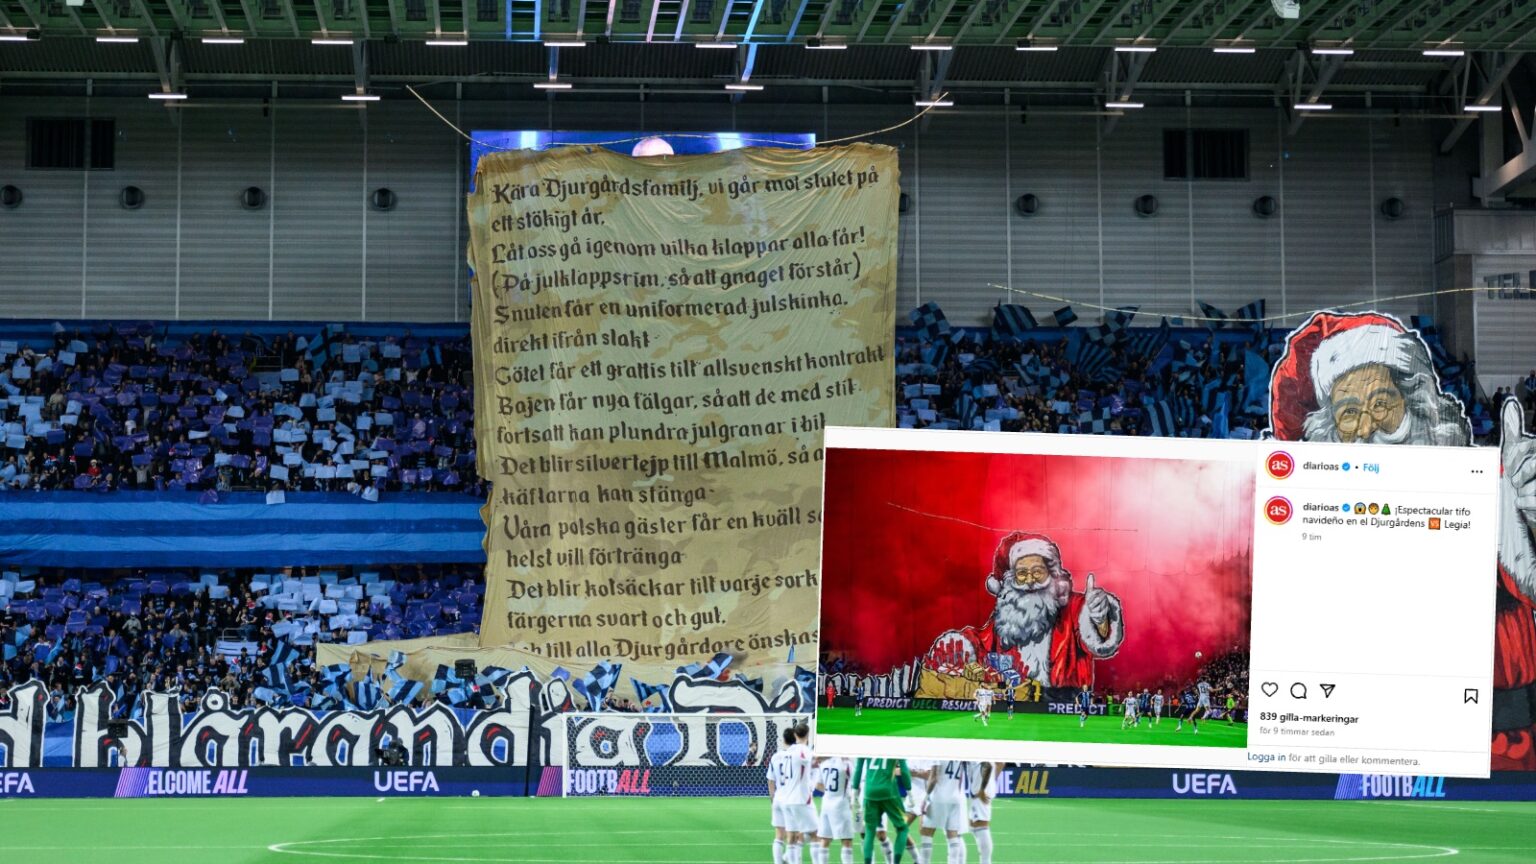 Kära Djurgårdsfamilj, vi går mot slutet på
ett stökigt år.
Låt oss gå igenom vilka klappar alla får!
(På julklappsrim, så att gnaget förstår)
Snuten får en uniformerad julskinka,
direkt ifrån slakt
Götet får ett grattis till allsvenskt kontrakt
Bajen får nya fälgar, så att de med stil
fortsatt kan plundra julgranar i bil
Det blir silvertejp till Malmö, så a
käftarna kan stänga
Våra polska gäster får en kväll s
helst vill förtränga
Det blir kolsäckar till varje sork
färgerna svart och gul.
till alla Djurgårdare önskas
blåränd
FA
ELCOME ALL
UEFA
FOOTBALL
ME ALL
UEFA
FOOTBALL
21
23
PREDICT UECL RESULT
PREDICT
as
diarioas • Följ
as
diarioas 😱🎅🎄 ¡Espectacular tifo
navideño en el Djurgårdens 🆚 Legia!
9 tim
839 gilla-markeringar
för 9 timmar sedan
Logga in för att gilla eller kommentera.